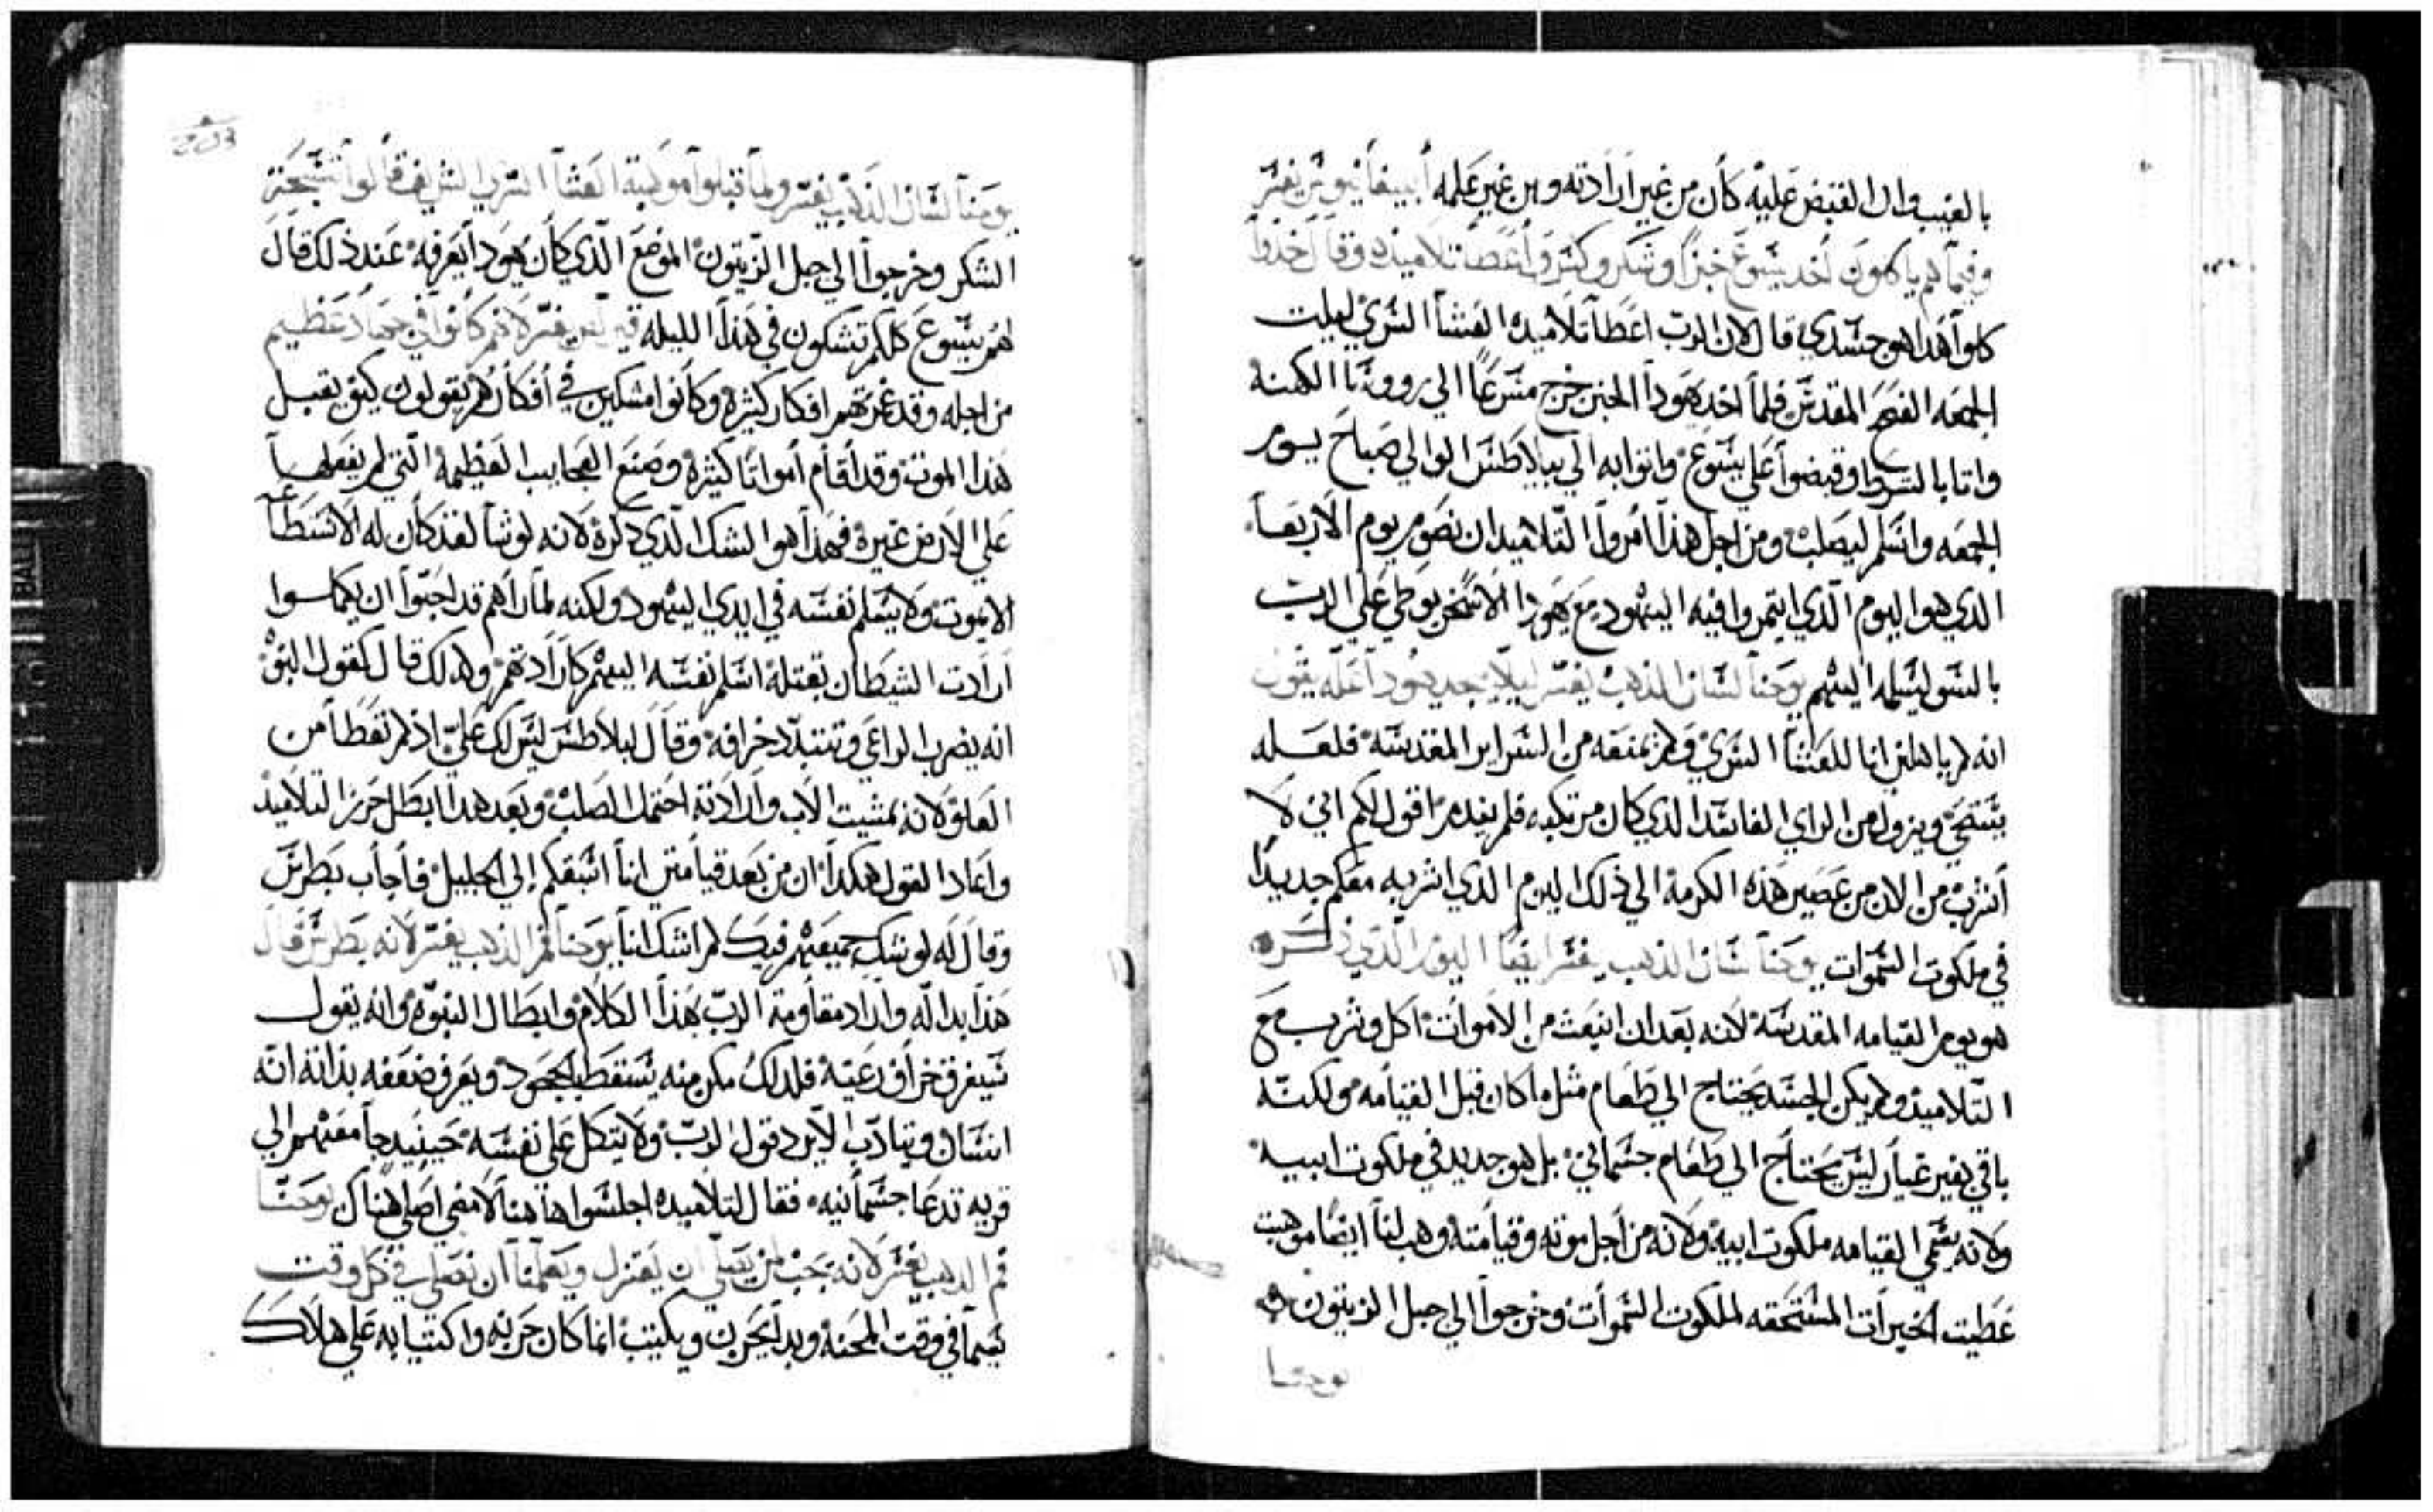 بالغيب وان القبض عليه كان من غير ارادته ومن غير علمه أبيفانيوس يفسر
وفيما هم ياكلون اخد يسوع خبزًا وشكر وكسر وأعطا تلاميذه وقال خدوا
كلوا هدا هو جسدي قال الان الرب اعطا تلاميده العشا السري ليلت
الجمعه الفصح المقدس فلما اخد يهودا الخبز خرج مسرعًا الي رووسا الكهنه
واتا بالشرط وقبضوا علي يسوع واتوا به الي بيلاطس الوالي صباح يوم
الجمعه واسلم ليصلب ومن اجل هذا امروا التلاميد ان نصوم يوم الاربعا
الدي هوا اليوم الدي ايتمروا فيه اليهود مع يهودا الاسخريوطي علي الرب
بالسو ليسلمه اليهم يوحنا لسان الدهب يفسر ليلا يجد يهودا عله يقول
انه لم ياهلني انا للعشا السري ولم يمنعه من السراير المقدسه فلعله
يستحي ويزول من الراي الفاسد الدي كان مرتكبه فلم يفده اقول لكم اني لا
أشرب من الان من عصير هذه الكرمة الي ذلك اليوم الدي اشربه معكم جديدًا
في ملكوت السموات يوحنا لسان الدهب يفسر ايضًا اليوم الدي ذكره
هو يوم القيامه المقدسة لانه بعد ان انبعث من الاموات اكل وشرب مع
التلاميد ولم يكن الجسد يحتاج الي طعام مثل ما كان قبل القيامه ولكنه
باقي بغير غيار ليس يحتاج الي طعام جسماني بل هو جديد في ملكوت ابيه
ولانه يسمي القيامه ملكوت ابيه ولانه من أجل موته وقيامته وهب لنا ايضًا موهبت
عطيت الخيرات المستحقه لملكوت السموات وخرجوا الي جبل الزيتون
يوحنا
يوحنا لسان الذهب يفسر ولما قبلوا موهبة العشا السري الشريف قالوا تسبحة
الشكر وخرجوا الي جبل الزيتون الموضع الذي كان يهودا يعرفه عند ذلك قال
لهم يسوع كلكم تشكون في هذا الليله يفسر لانهم كانوا في جهاد عظيم
من اجله وقد غرتهم افكار كثيرة وكانوا مشكين في أفكارهم يقولون كيف يقبل
هذا الموت وقد أقام أمواتًا كثيرة وصنع العجايب العظيمة التي لم يفعلها
علي الارض غيره فهذا هوا الشك الذي ذكره لانه لو شا لقد كان له الاستطاعه
الا يموت ولا يسلم نفسه في ايدي اليهود ولكنه لما راهم قد احبوا ان يكملوا
ارادت الشيطان بقتله اسلم نفسه اليهم كارادتهم ولدلك قال كقول النبي
انه يضرب الراعي وتتبدد خرافه وقال لبيلاطس ليس لك علي اذ لم تعطا من
العلو لانه بمشيت الاب وارادته احتمل الصلب وبعد هدا ابطل حزن التلاميد
وأعاد القول هكدا ان من بعد قيامتي انا اسبقكم إلي الجليل فأجاب بطرس
وقال له لو شك جميعهم فيك لم اشك انا يوحنا فم الذهب يفسر لانه بطرس قال
هذا بداله وأراد مقاومة الرب بهذا الكلام وابطال النبوة وانه يقول
سيفرق خراف رعيته فلدلك مكن منه يسقط بالجحود ويعرف ضعفه بذاته انه
انسان ويتادب لا يرد قول الرب ولا يتكل علي نفسه حينيد جا معهم الي
قريه تدعا جسمانيه فقال لتلاميده اجلسوا هاهنا لامضي اصلي هناك يوحنا
فم الدهب يفسر لانه يجب لمن يصلي ان يعتزل ويعلمنا ان نصلي في كل وقت
سيما في وقت المحنة وبدا يحزن ويكتيب انما كان حزنه واكتيابه علي هلاك